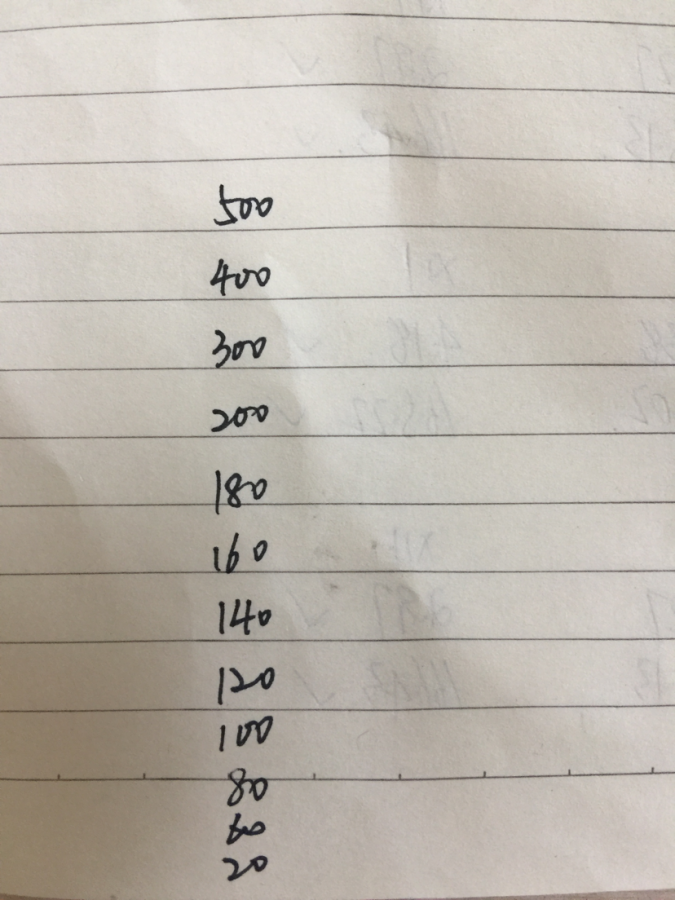 500
400
300
200
180
160
140
120
100
80
60
20